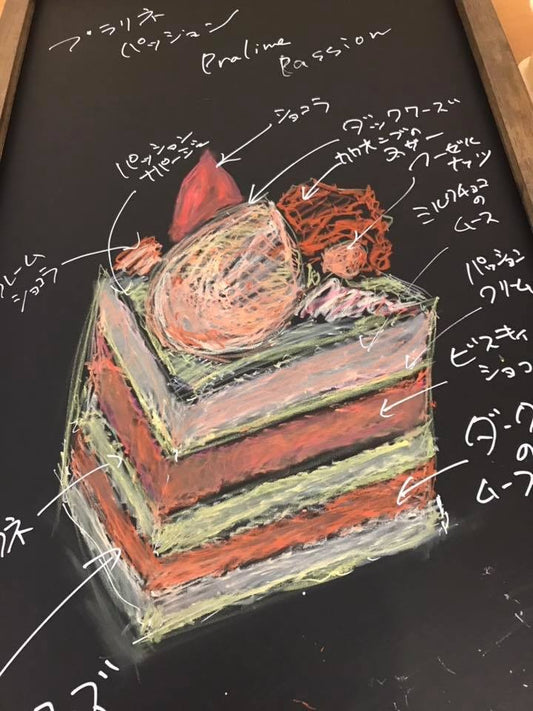 プラリネ
パッション
Praline
Passion
ショコラ
パッション
ナパージュ
ダックワーズ
カカオニブの
ヌガー
ノーゼル
ナッツ
ミルクチョコ
の
ムース
レーム
ショコラ
パッション
クリーム
ビスキィ
ショコ
ダーク
の
ムース
ネ
ズ